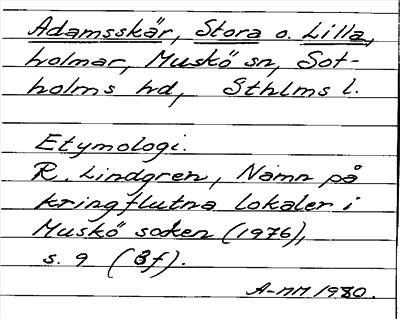 Adamsskär, Stora o. Lilla,
holmar, Muskö sn, Sot-
holms hd, Sthlms l.
Etymologi.
R. Lindgren, Namn på
kringflutna lokaler i
Muskö socken (1976),
s. 9 (3f).
A-MM 1980.